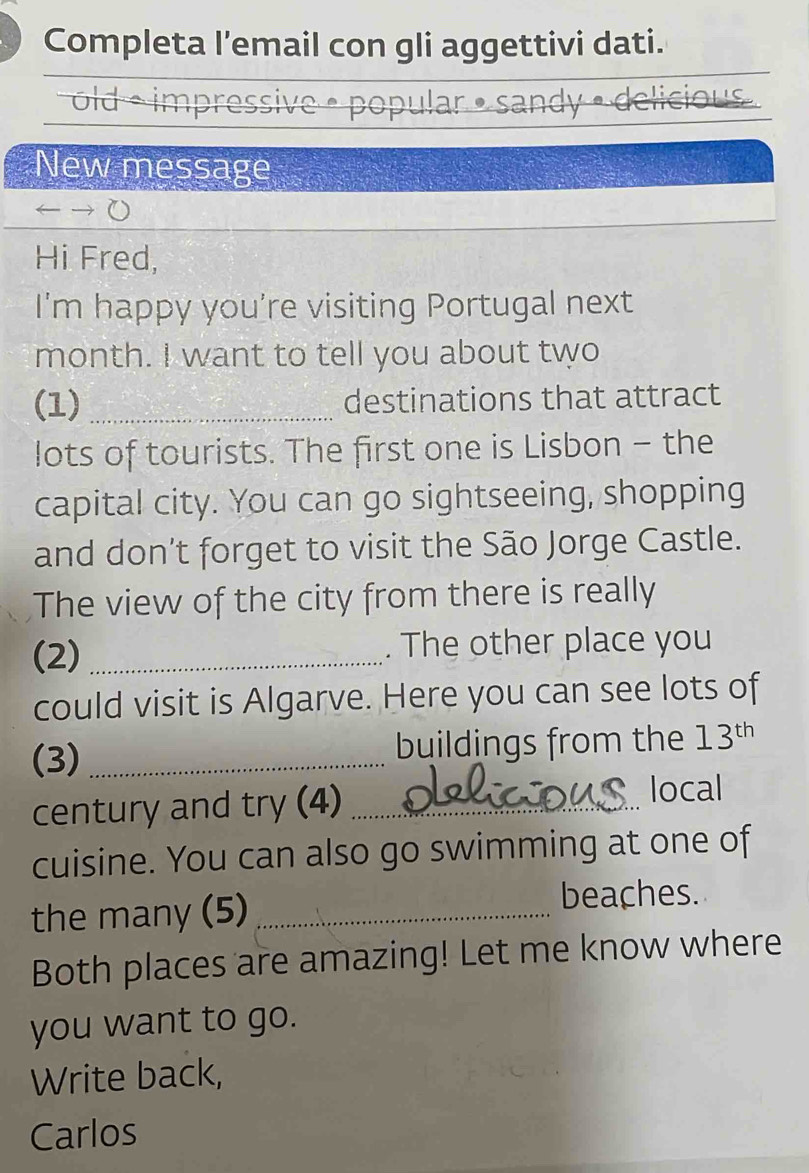 Completa l'email con gli aggettivi dati.
old • impressive • popular • sandy • delicious
New message
← → ↻
Hi Fred,
I'm happy you're visiting Portugal next
month. I want to tell you about two
(1) ........................ destinations that attract
lots of tourists. The first one is Lisbon – the
capital city. You can go sightseeing, shopping
and don't forget to visit the São Jorge Castle.
The view of the city from there is really
(2) ........................ . The other place you
could visit is Algarve. Here you can see lots of
(3) ........................ buildings from the 13th
century and try (4) delicious local
cuisine. You can also go swimming at one of
the many (5) ........................ beaches.
Both places are amazing! Let me know where
you want to go.
Write back,
Carlos